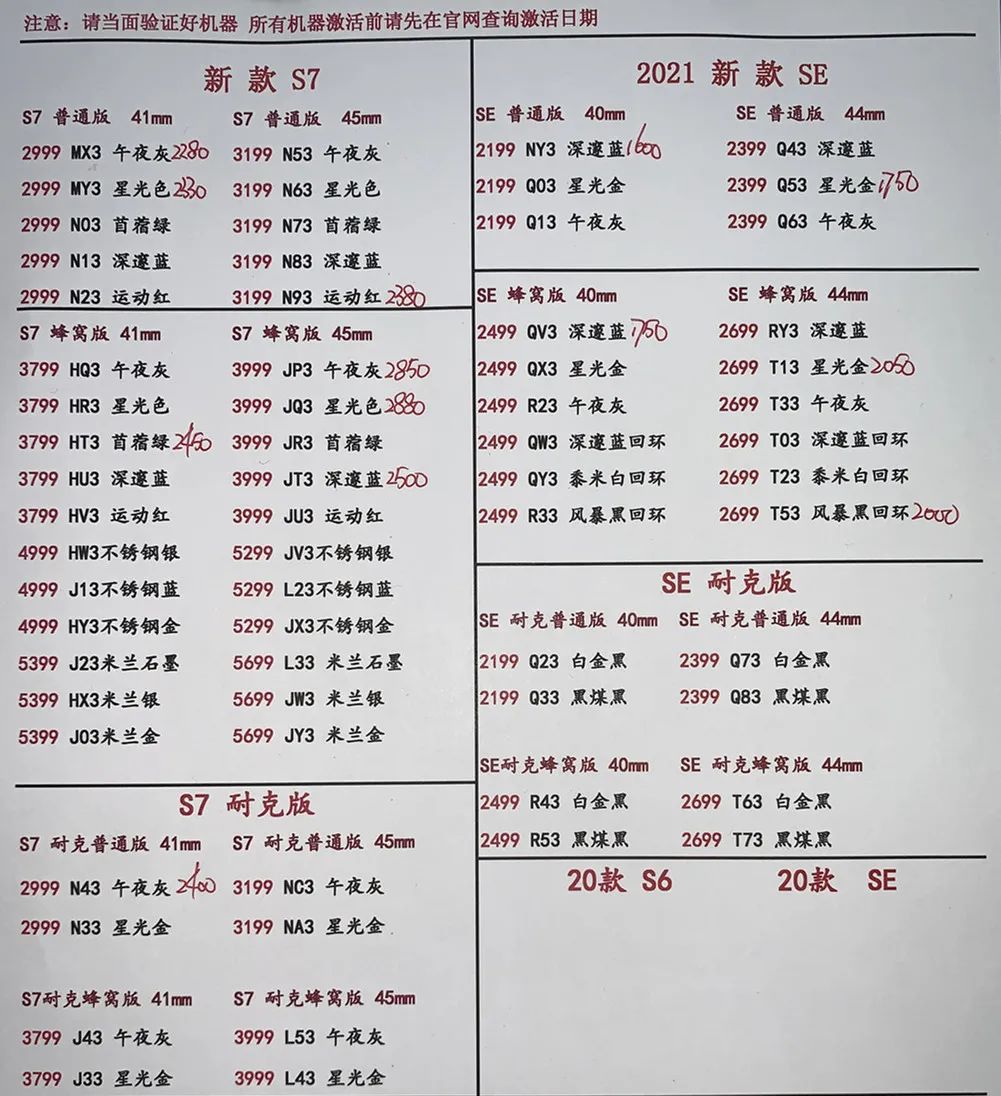 注意：请当面验证好机器 所有机器激活前请先在官网查询激活日期
新 款 S7
S7 普通版 41mm S7 普通版 45mm
2999 MX3 午夜灰 2280 3199 N53 午夜灰
2999 MY3 星光色 2330 3199 N63 星光色
2999 N03 首蓿绿 3199 N73 首蓿绿
2999 N13 深邃蓝 3199 N83 深邃蓝
2999 N23 运动红 3199 N93 运动红 2380
S7 蜂窝版 41mm S7 蜂窝版 45mm
3799 HQ3 午夜灰 3999 JP3 午夜灰 2850
3799 HR3 星光色 3999 JQ3 星光色 2880
3799 HT3 首蓿绿 2450 3999 JR3 首蓿绿
3799 HU3 深邃蓝 3999 JT3 深邃蓝 2500
3799 HV3 运动红 3999 JU3 运动红
4999 HW3不锈钢银 5299 JV3不锈钢银
4999 J13不锈钢蓝 5299 L23不锈钢蓝
4999 HY3不锈钢金 5299 JX3不锈钢金
5399 J23米兰石墨 5699 L33 米兰石墨
5399 HX3米兰银 5699 JW3 米兰银
5399 J03米兰金 5699 JY3 米兰金
S7 耐克版
S7 耐克普通版 41mm S7 耐克普通版 45mm
2999 N43 午夜灰 2400 3199 NC3 午夜灰
2999 N33 星光金 3199 NA3 星光金
S7耐克蜂窝版 41mm S7 耐克蜂窝版 45mm
3799 J43 午夜灰 3999 L53 午夜灰
3799 J33 星光金 3999 L43 星光金
2021 新 款 SE
SE 普通版 40mm SE 普通版 44mm
2199 NY3 深邃蓝 1600 2399 Q43 深邃蓝
2199 Q03 星光金 2399 Q53 星光金 1750
2199 Q13 午夜灰 2399 Q63 午夜灰
SE 蜂窝版 40mm SE 蜂窝版 44mm
2499 QV3 深邃蓝 1750 2699 RY3 深邃蓝
2499 QX3 星光金 2699 T13 星光金 2050
2499 R23 午夜灰 2699 T33 午夜灰
2499 QW3 深邃蓝回环 2699 T03 深邃蓝回环
2499 QY3 黍米白回环 2699 T23 黍米白回环
2499 R33 风暴黑回环 2699 T53 风暴黑回环 2000
SE 耐克版
SE 耐克普通版 40mm SE 耐克普通版 44mm
2199 Q23 白金黑 2399 Q73 白金黑
2199 Q33 黑煤黑 2399 Q83 黑煤黑
SE耐克蜂窝版 40mm SE 耐克蜂窝版 44mm
2499 R43 白金黑 2699 T63 白金黑
2499 R53 黑煤黑 2699 T73 黑煤黑
20款 S6 20款 SE